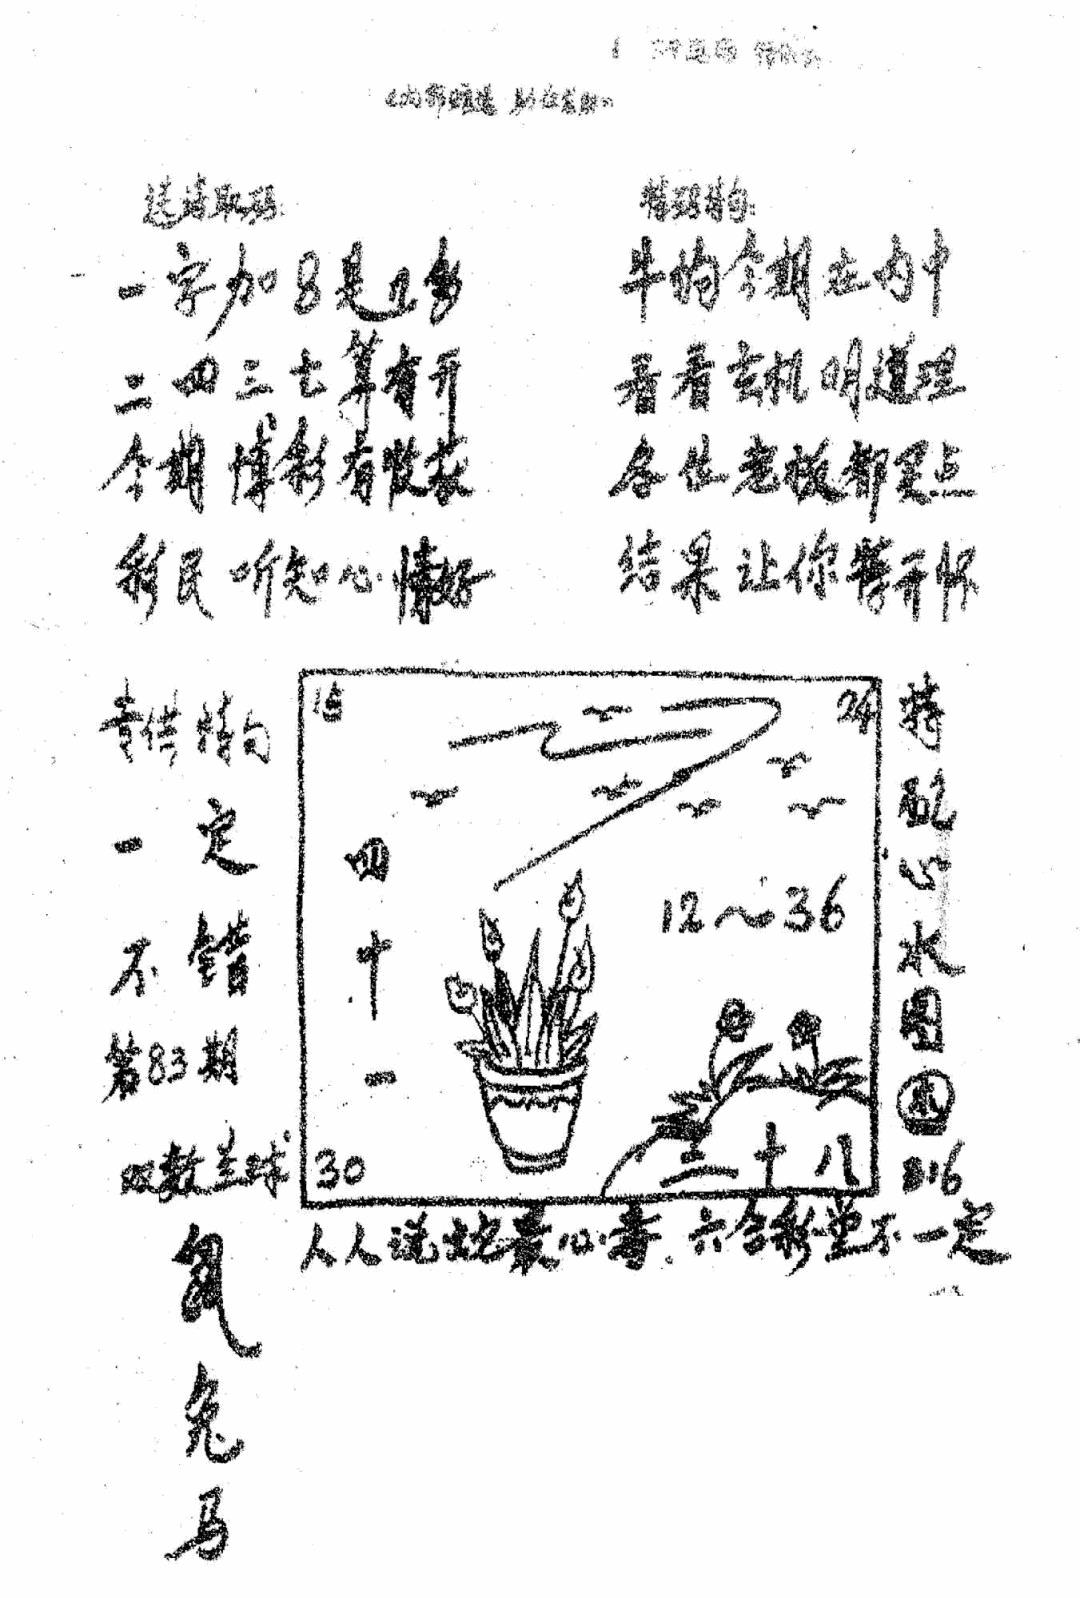 送诗取码:
特码诗句:
一字加8是几多
牛狗今期在内中
二四三七算有开
看看玄机明道理
今期博彩有收获
各位老板都买点
彩民听知心情好
结果让你特开怀
责供特句
一定
不错
第83期
双数兰球
15
24
四十一
12~36
30
三十八
特配心水图
216
人人说蛇最心毒.六合彩堂不一定
鼠
兔
马